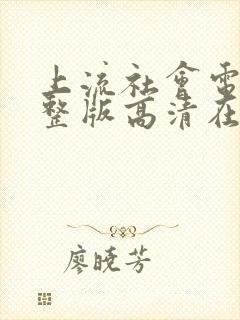 上流社會電
整版高清在
廖曉芳